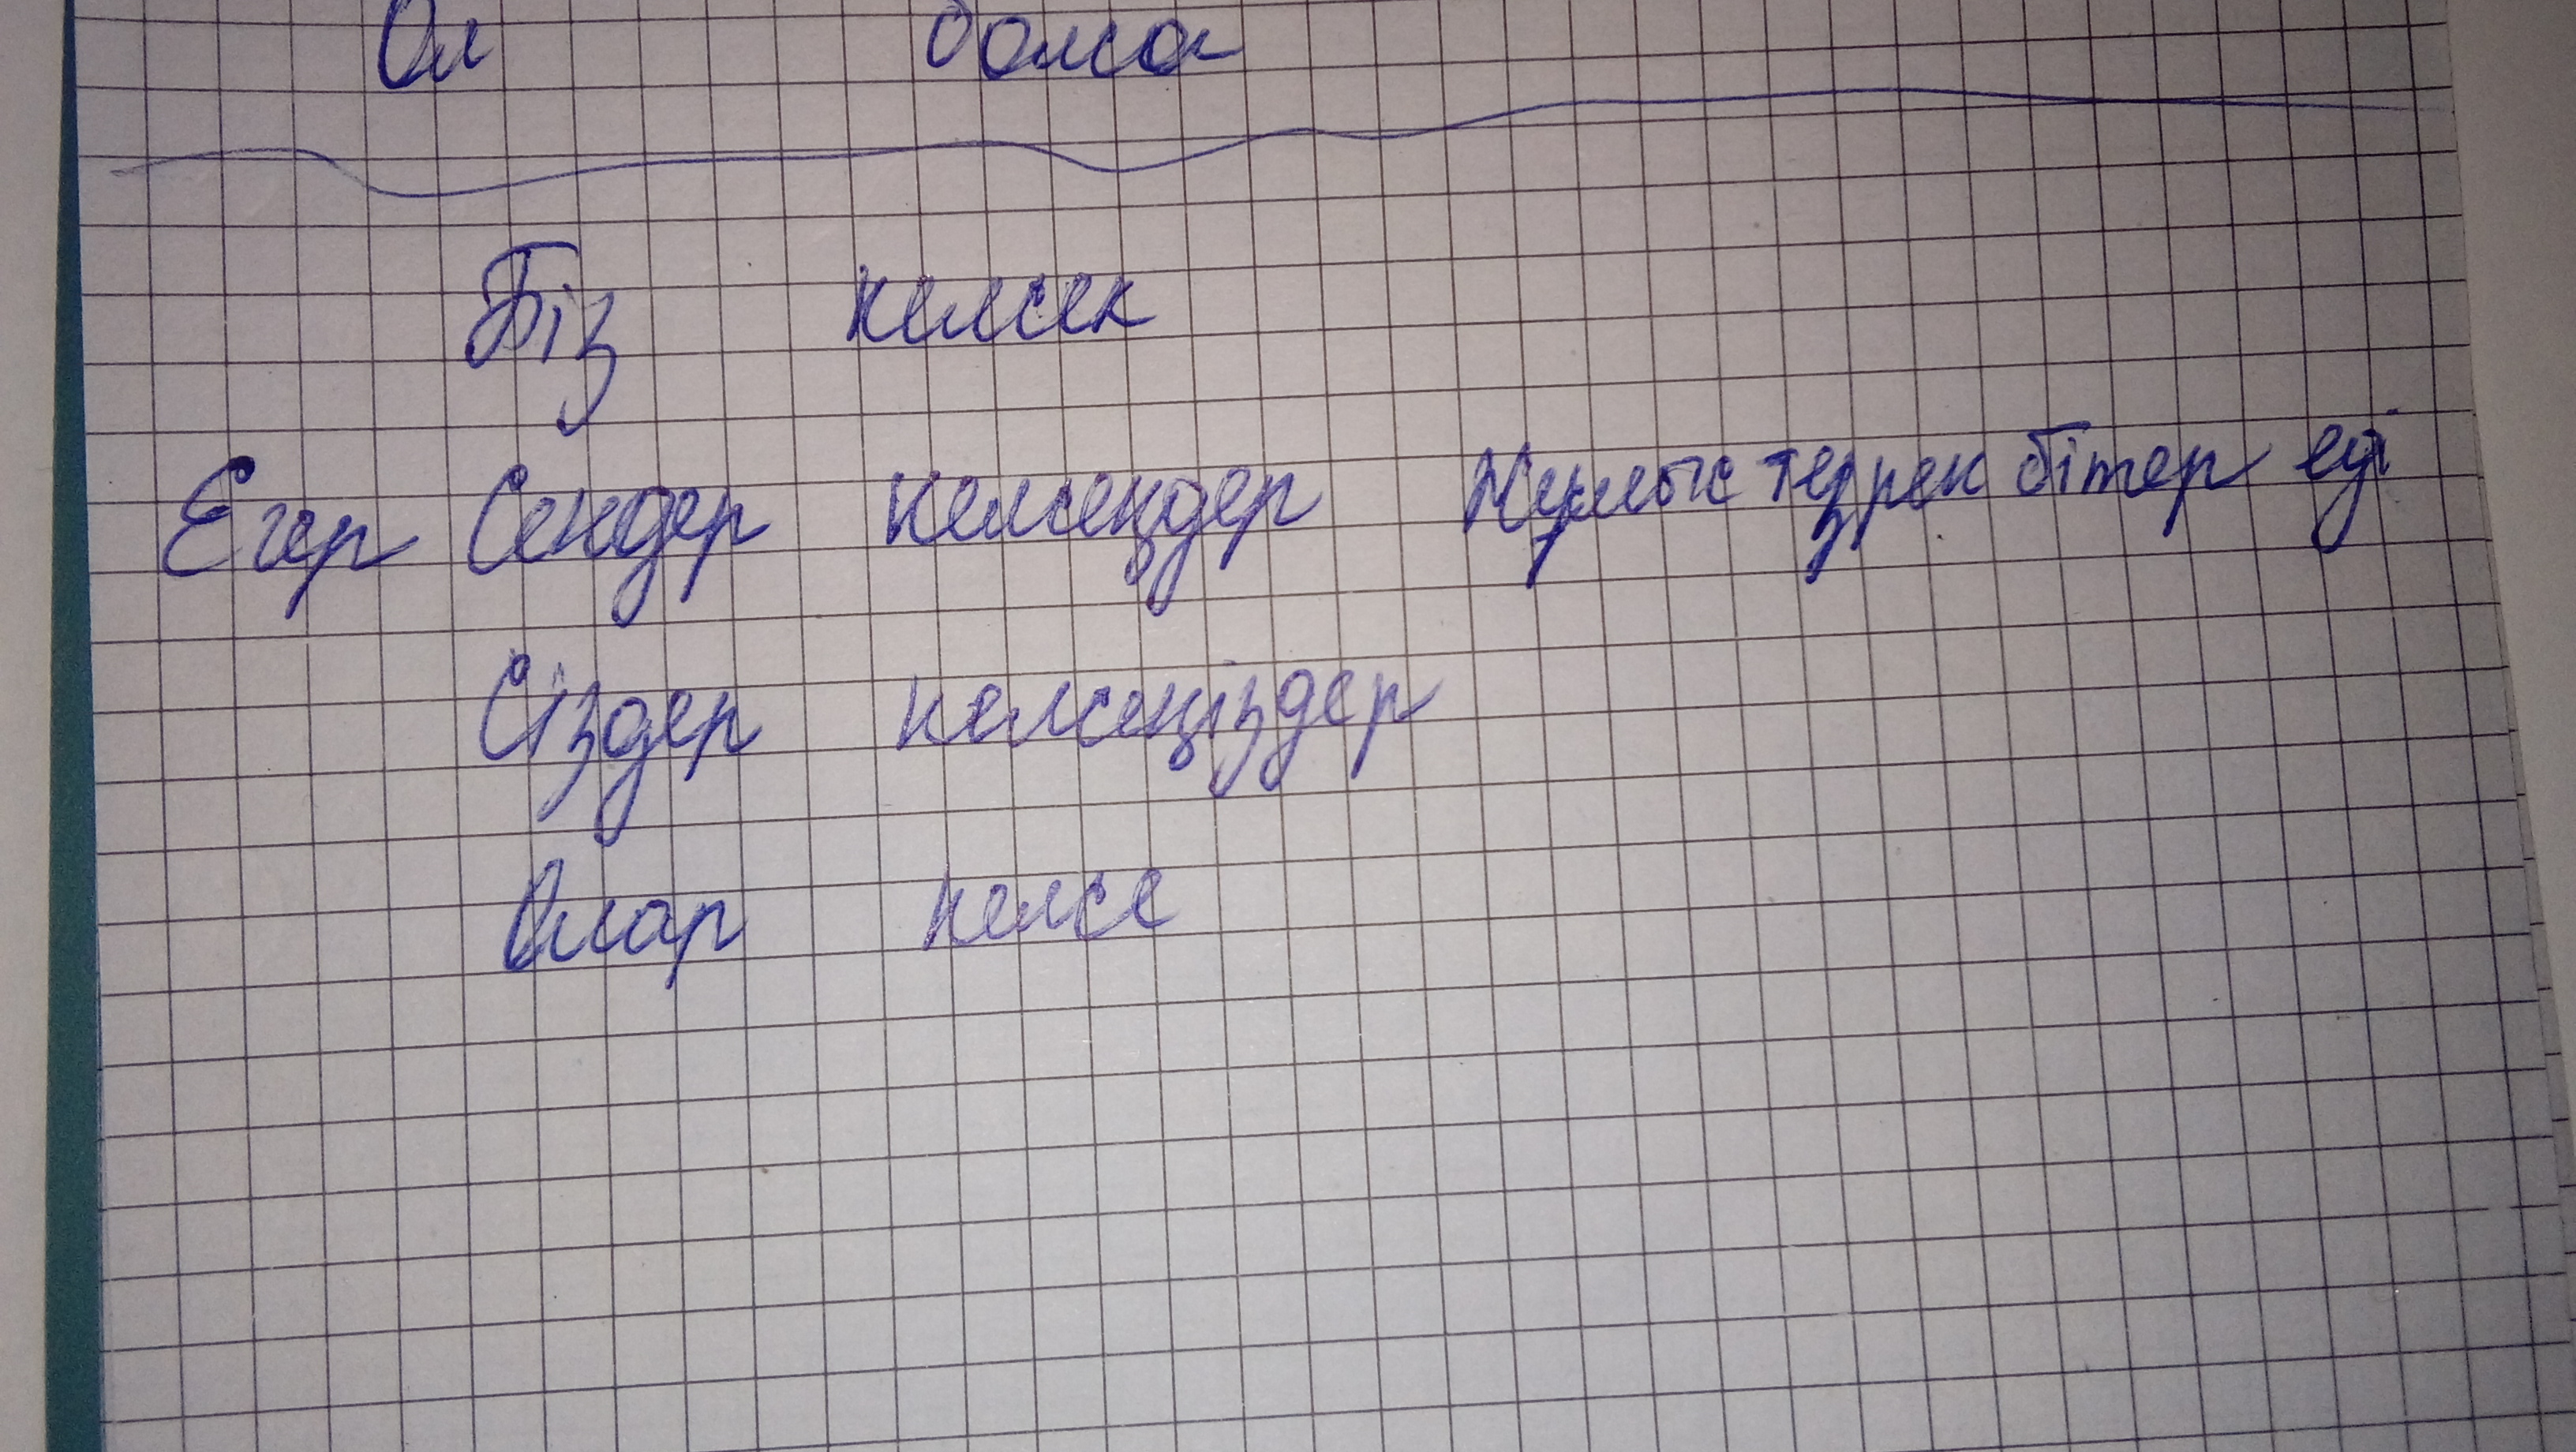 Ол болса
Біз келсек
Егер Сендер келсеңдер Жұмыс тезрек бітер еді
Сіздер келсеңіздер
Олар келсе